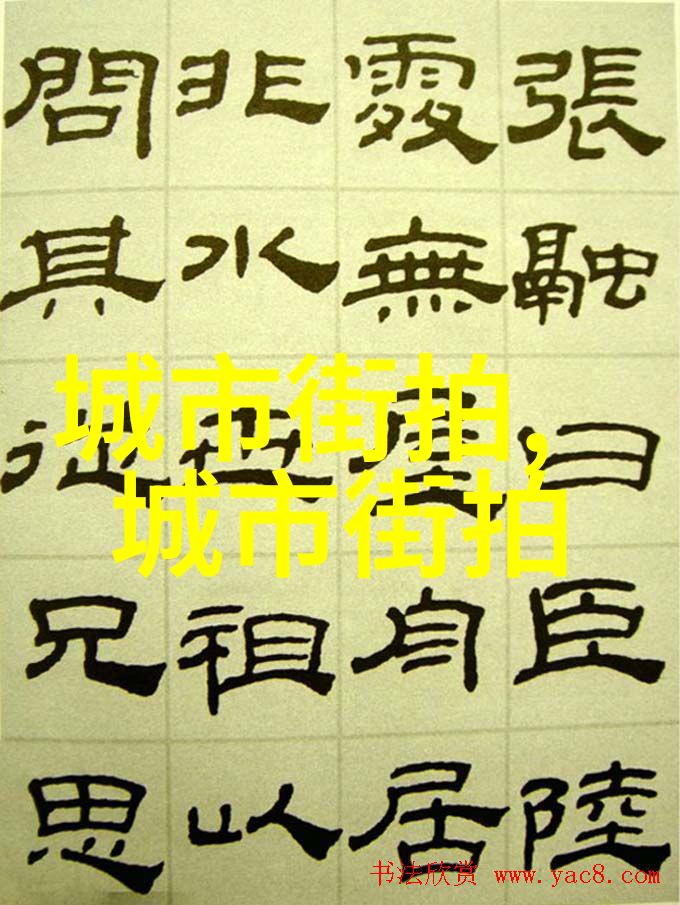 張融曰臣陸
處無屋舟居
非水世祖以
問其從兄思
城市街拍,
城市街拍
书法欣赏 www.yac8.com